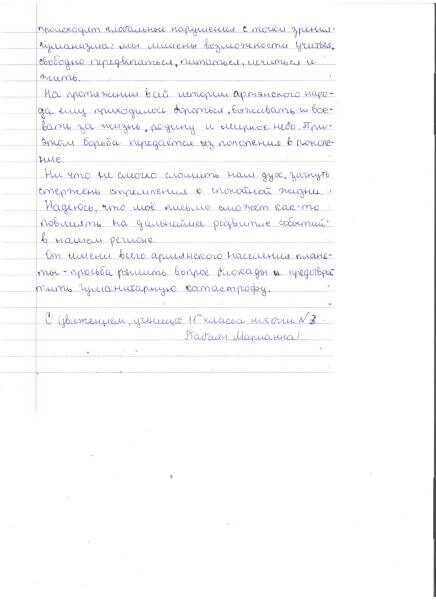 происходят глобальные нарушения с точки зрения
гуманизма: мы лишены возможности учиться,
свободно передвигаться, питаться, лечиться и
жить.
На протяжении всей истории армянского наро-
да ему приходилось бороться, выживать и вое-
вать за жизнь, родину и мирное небо. При
этом борьба передаётся из поколения в поколе-
ние.
Ни что не смогло сломить наш дух, загнуть
стержень стремления к спокойной жизни.
Надеюсь, что моё письмо сможет как-то
повлиять на дальнейшее развитие событий
в нашем регионе.
От имени всего армянского населения плане-
ты - просьба решить вопрос блокады и предотвра
тить гуманитарную катастрофу.
С уважением, ученица 11 класса школы N3
Марианна